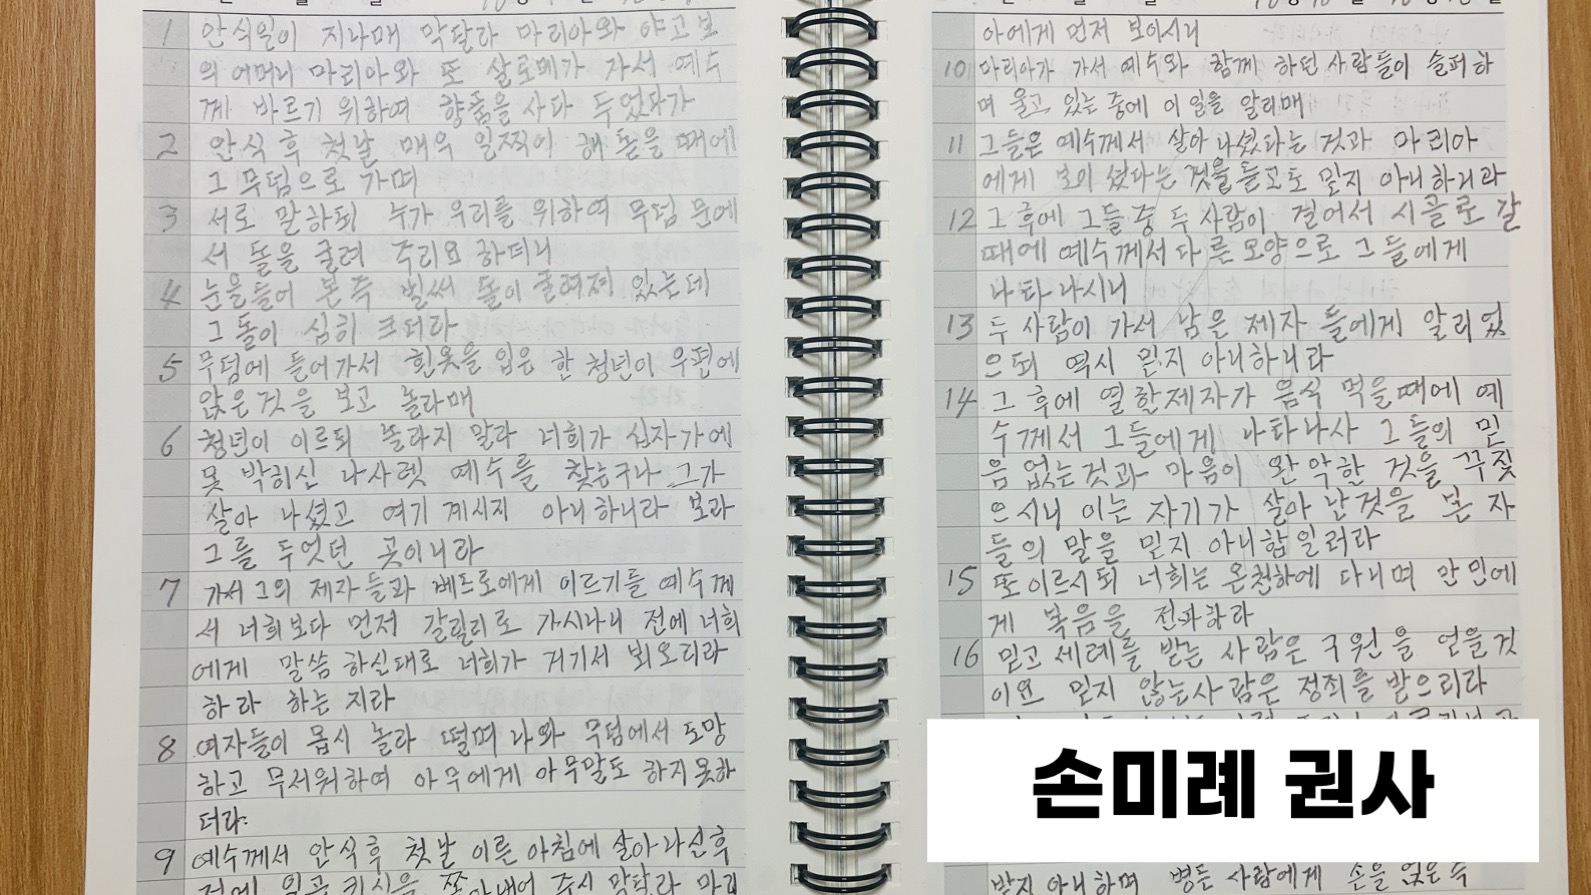 1 안식일이 지나매 막달라 마리아와 야고보
의 어머니 마리아와 또 살로메가 가서 예수
께 바르기 위하여 향품을 사다 두었다가
2 안식 후 첫날 매우 일찍이 해 돋을 때에
그 무덤으로 가며
3 서로 말하되 누가 우리를 위하여 무덤 문에
서 돌을 굴려 주리요 하더니
4 눈을들어 본즉 벌써 돌이 굴려져 있는데
그 돌이 심히 크더라
5 무덤에 들어가서 흰옷을 입은 한 청년이 우편에
앉은것을 보고 놀라매
6 청년이 이르되 놀라지 말라 너희가 십자가에
못 박히신 나사렛 예수를 찾는구나 그가
살아 나셨고 여기 계시지 아니하니라 보라
그를 두엇던 곳이니라
7 가서 그의 제자들과 베드로에게 이르기를 예수께
서 너희보다 먼저 갈릴리로 가시나니 전에 너희
에게 말씀 하신대로 너희가 거기서 뵈오리라
하라 하는 지라
8 여자들이 몹시 놀라 떨며 나와 무덤에서 도망
하고 무서워하여 아무에게 아무말도 하지못하
더라.
9 예수께서 안식후 첫날 이른 아침에 살아나신후
전에 일곱 귀신을 쫓아내어 주신 막달라 마리
아에게 먼저 보이시니
10 마리아가 가서 예수와 함께 하던 사람들이 슬퍼하
며 울고 있는 중에 이 일을 알리매
11 그들은 예수께서 살아나셨다는 것과 마리아
에게 보이셨다는 것을듣고도 믿지 아니하니라
12 그 후에 그들 중 두 사람이 걸어서 시골로 갈
때에 예수께서 다른 모양으로 그들에게
나타나시니
13 두 사람이 가서 남은 제자 들에게 알리었
으되 역시 믿지 아니하니라
14 그 후에 열 한제자가 음식 먹을때에 예
수께서 그들에게 나타나사 그들의 믿
음 없는것과 마음이 완악한 것을 꾸짖
으시니 이는 자기가 살아 난것을 본 자
들의 말을 믿지 아니함일러라
15 또 이르시되 너희는 온천하에 다니며 만민에
게 복음을 전파하라
16 믿고 세례를 받는 사람은 구원을 얻을것
이요 믿지 않는사람은 정죄를 받으리라
손미례 권사
받지 아니하며 병든 사람에게 손을 얹은즉